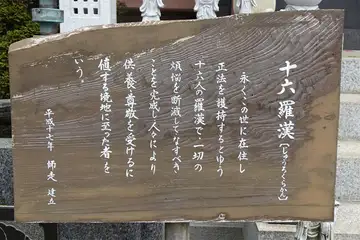 十六羅漢［じゅうろくらかん］
永くこの世に在住し
正法を護持するとゆう
十六人の羅漢で一切の
煩悩を断滅してなすべき
ことを完成し人々により
供養・尊敬を受けるに
値する境地に至った者を
いう。
平成十七年 師走 建立